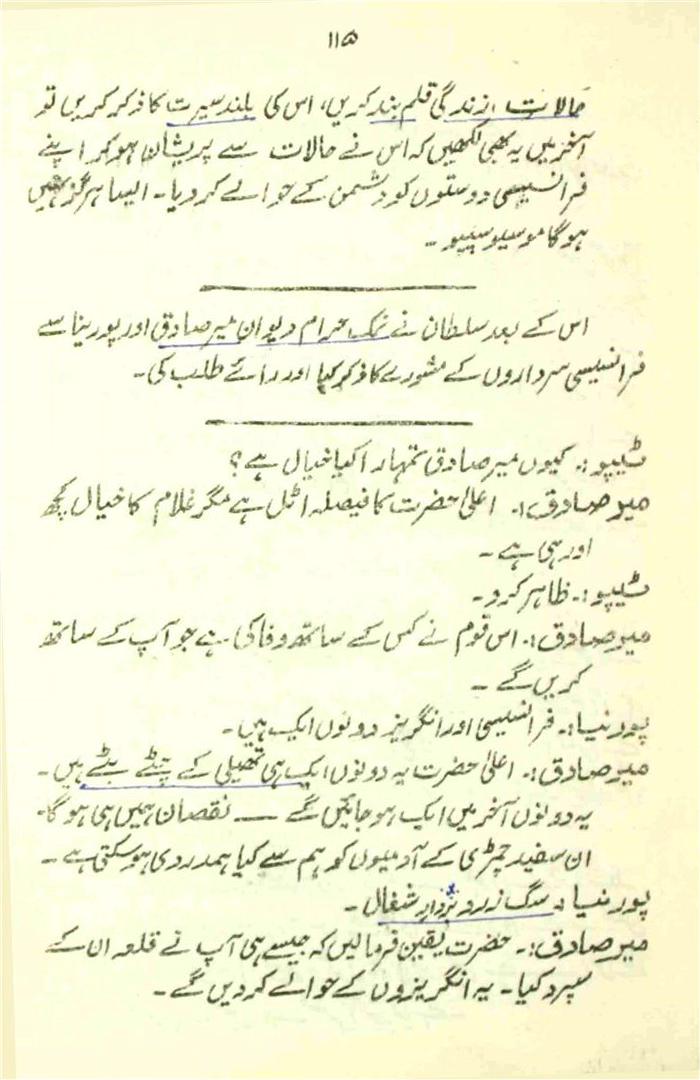 ۱۱۵
حالات زندگی قلم بند کریں، اس کی بلند سیرت کا ذکر کریں تو
آخر میں یہ بھی لکھیں کہ اس نے حالات سے پریشان ہو کر اپنے
فرانسیسی دوستوں کو دشمن کے حوالے کر دیا۔ ایسا ہرگز نہیں
ہوگا موسیو سیپو۔
اس کے بعد سلطان نے نمک حرام دیوان میر صادق اور پورنیا سے
فرانسیسی سرداروں کے مشورے کا ذکر کیا اور رائے طلب کی۔
ٹیپو:۔ کیوں میر صادق تمہارا کیا خیال ہے؟
میر صادق:۔ اعلیٰ حضرت کا فیصلہ اٹل ہے مگر غلام کا خیال کچھ
اور ہی ہے۔
ٹیپو:۔ ظاہر کرو۔
میر صادق:۔ اس قوم نے کس کے ساتھ وفا کی ہے جو آپ کے ساتھ
کریں گے۔
پورنیا:۔ فرانسیسی اور انگریز دونوں ایک ہیں۔
میر صادق:۔ اعلیٰ حضرت یہ دونوں ایک ہی تھیلی کے چٹے بٹے ہیں۔
یہ دونوں آخر میں ایک ہو جائیں گے ـــ نقصان ہمیں ہی ہوگا۔
ان سفید چمڑی کے آدمیوں کو ہم سے کیا ہمدردی ہو سکتی ہے۔
پورنیا۔ سگ زرد بردار شغال۔
میر صادق:۔ حضرت یقین فرمالیں کہ جیسے ہی آپ نے قلعہ ان کے
سپرد کیا۔ یہ انگریزوں کے حوالے کر دیں گے۔